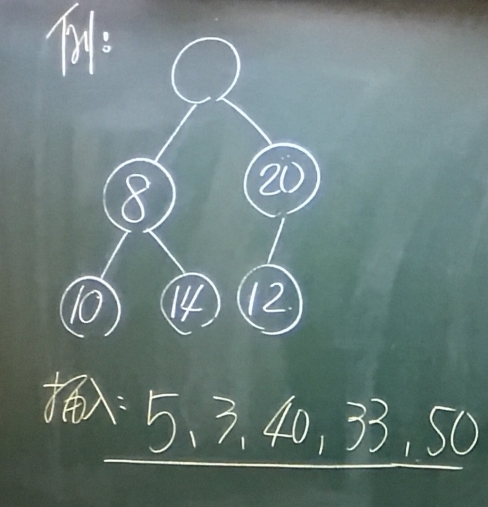 例:
8
20
10
14
12
插入: 5、3、40, 33, 50